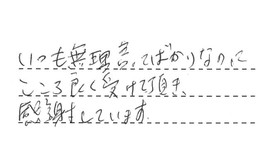 いつも無理言ってばかりなのに
こころ良く受けて頂き、
感謝しています。